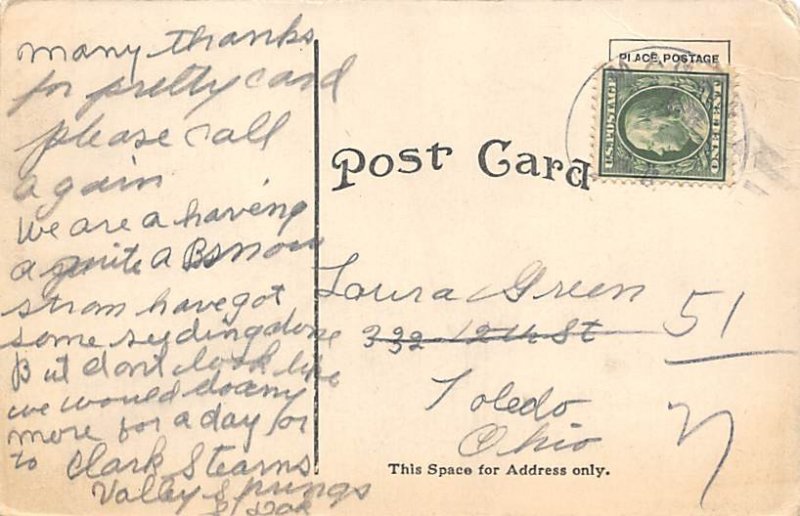 many thanks
for pretty card
please call
again
we are a having
a quite a Bsnow
strom have got
some sydingdone
But dont look like
we would do any
more for a day or
to Clark Stearns
Valley Springs
S Dak
PLACE POSTAGE
U.S. POSTAGE
ONE CENT
Post Card
Laura Green
332 12th St
51
Toledo
Ohio
This Space for Address only.